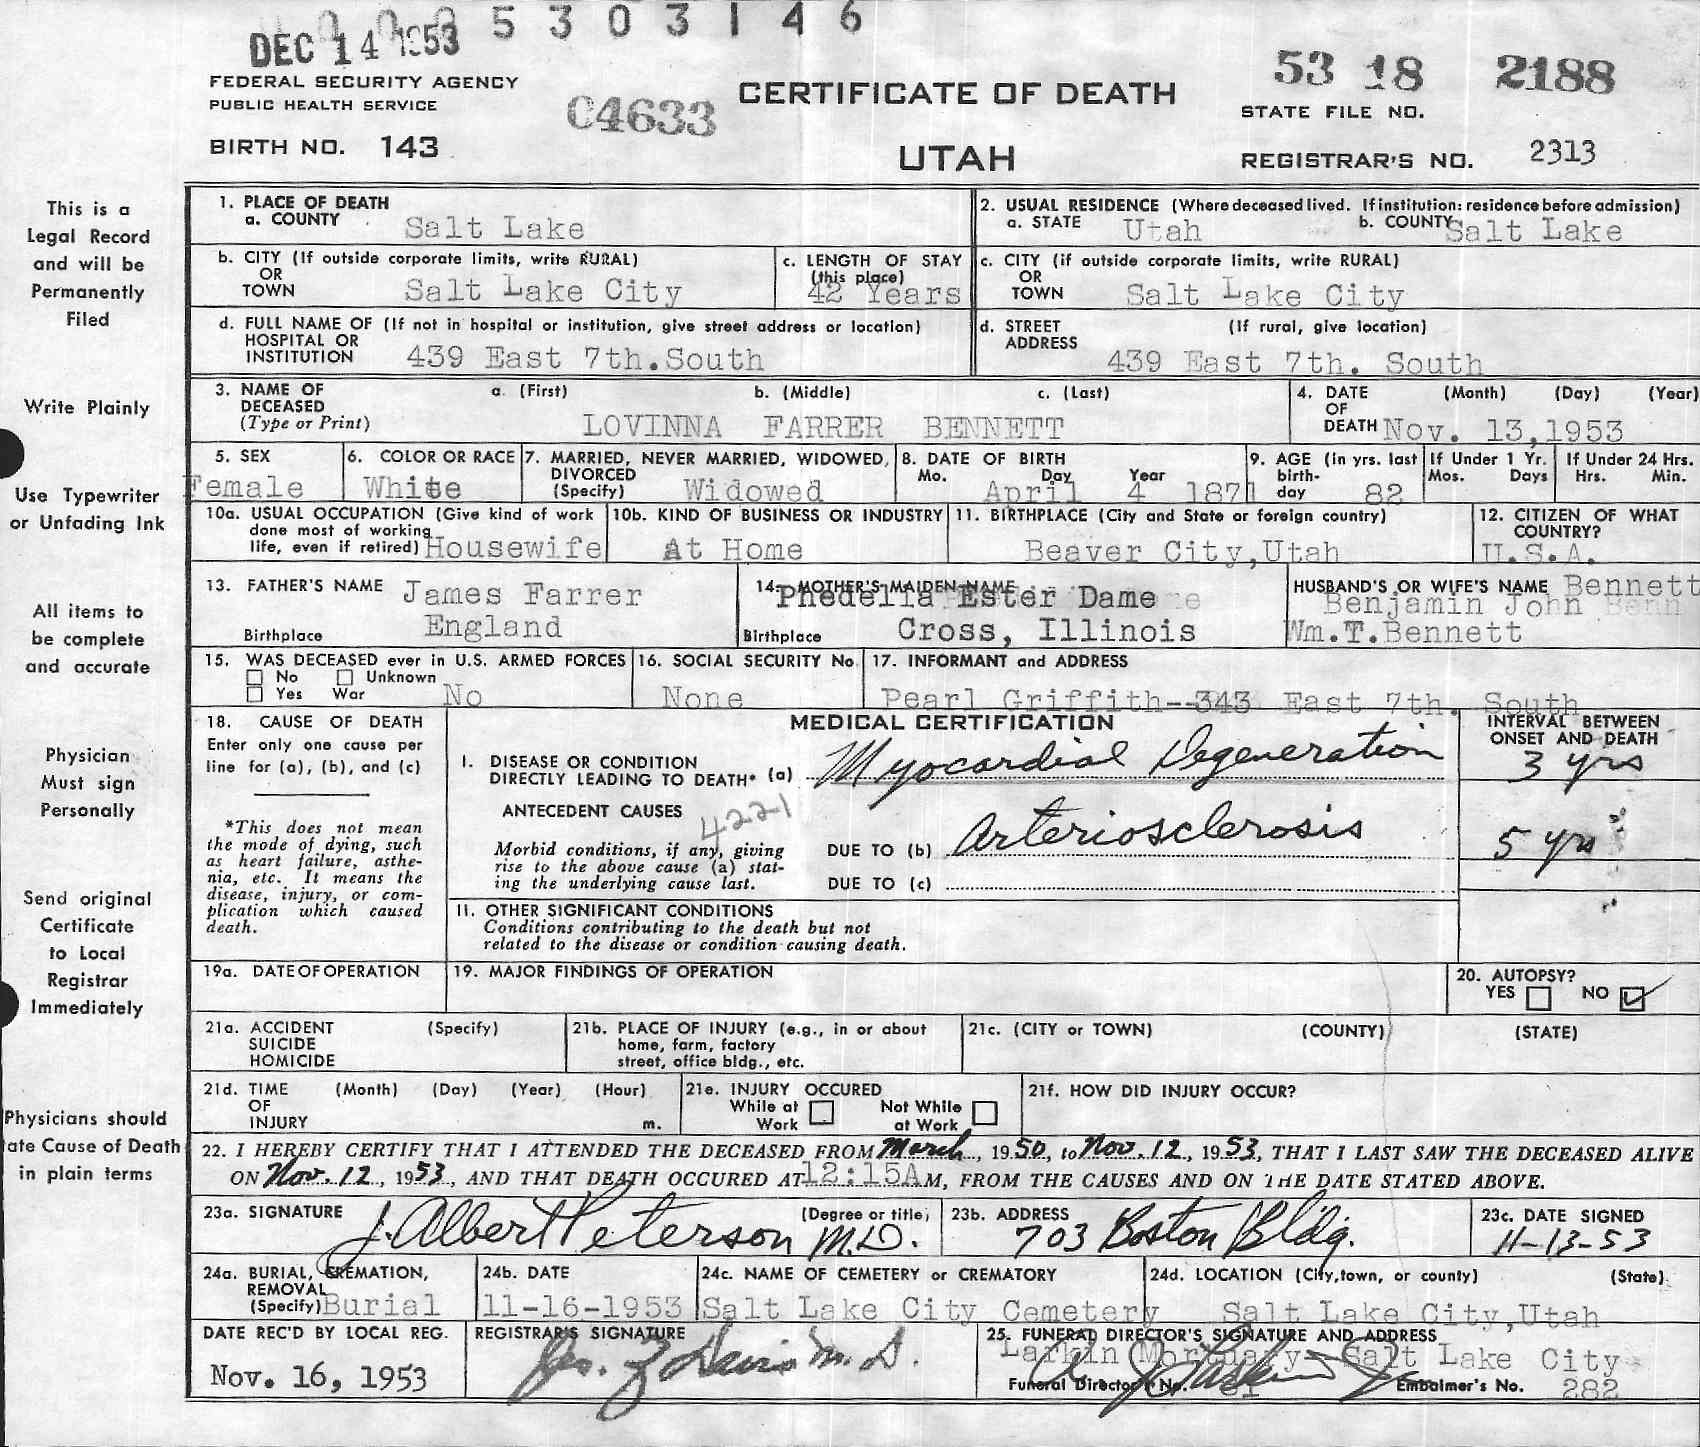 0005303146
DEC 14 1953
53 18 2188
FEDERAL SECURITY AGENCY
PUBLIC HEALTH SERVICE
C4633
CERTIFICATE OF DEATH
STATE FILE NO.
BIRTH NO. 143
UTAH
REGISTRAR'S NO. 2313
This is a
Legal Record
and will be
Permanently
Filed
Write Plainly
Use Typewriter
or Unfading Ink
All items to
be complete
and accurate
Physician
Must sign
Personally
Send original
Certificate
to Local
Registrar
Immediately
Physicians should
ate Cause of Death
in plain terms
1. PLACE OF DEATH
a. COUNTY Salt Lake
2. USUAL RESIDENCE (Where deceased lived. If institution: residence before admission)
a. STATE Utah b. COUNTY Salt Lake
b. CITY (If outside corporate limits, write RURAL)
OR
TOWN Salt Lake City
c. LENGTH OF STAY
(this place)
42 Years
c. CITY (if outside corporate limits, write RURAL)
OR
TOWN Salt Lake City
d. FULL NAME OF (If not in hospital or institution, give street address or location)
HOSPITAL OR
INSTITUTION 439 East 7th.South
d. STREET (If rural, give location)
ADDRESS 439 East 7th. South
3. NAME OF a. (First) b. (Middle) c. (Last)
DECEASED
(Type or Print) LOVINNA FARRER BENNETT
4. DATE (Month) (Day) (Year)
OF
DEATH Nov. 13,1953
5. SEX
Female
6. COLOR OR RACE
White
7. MARRIED, NEVER MARRIED, WIDOWED,
DIVORCED
(Specify) Widowed
8. DATE OF BIRTH
Mo. Day Year
April 4 1871
9. AGE (in yrs. last
birth-
day 82
If Under 1 Yr.
Mos. Days
If Under 24 Hrs.
Hrs. Min.
10a. USUAL OCCUPATION (Give kind of work
done most of working
life, even if retired) Housewife
10b. KIND OF BUSINESS OR INDUSTRY
At Home
11. BIRTHPLACE (City and State or foreign country)
Beaver City,Utah
12. CITIZEN OF WHAT
COUNTRY?
U.S.A.
13. FATHER'S NAME James Farrer
Birthplace England
14. MOTHER'S MAIDEN NAME
Phedelia Ester Dame
Birthplace Cross, Illinois
HUSBAND'S OR WIFE'S NAME Bennett
Benjamin John
Wm.T.Bennett
15. WAS DECEASED ever in U.S. ARMED FORCES
No Unknown
Yes War No
16. SOCIAL SECURITY No.
None
17. INFORMANT and ADDRESS
Pearl Griffith--343 East 7th. South
18. CAUSE OF DEATH
Enter only one cause per
line for (a), (b), and (c)
*This does not mean
the mode of dying, such
as heart failure, asthe-
nia, etc. It means the
disease, injury, or com-
plication which caused
death.
MEDICAL CERTIFICATION
INTERVAL BETWEEN
ONSET AND DEATH
I. DISEASE OR CONDITION
DIRECTLY LEADING TO DEATH* (a) Myocardial Degeneration 3 yrs
ANTECEDENT CAUSES
4221
Morbid conditions, if any, giving
rise to the above cause (a) stat-
ing the underlying cause last.
DUE TO (b) Arteriosclerosis 5 yrs
DUE TO (c)
11. OTHER SIGNIFICANT CONDITIONS
Conditions contributing to the death but not
related to the disease or condition causing death.
19a. DATE OF OPERATION
19. MAJOR FINDINGS OF OPERATION
20. AUTOPSY?
YES NO
21a. ACCIDENT (Specify)
SUICIDE
HOMICIDE
21b. PLACE OF INJURY (e.g., in or about
home, farm, factory
street, office bldg., etc.
21c. (CITY or TOWN) (COUNTY) (STATE)
21d. TIME (Month) (Day) (Year) (Hour)
OF
INJURY m.
21e. INJURY OCCURED
While at Not While
Work at Work
21f. HOW DID INJURY OCCUR?
22. I HEREBY CERTIFY THAT I ATTENDED THE DECEASED FROM March, 1950, to Nov. 12, 1953, THAT I LAST SAW THE DECEASED ALIVE
ON Nov. 12, 1953, AND THAT DEATH OCCURED AT 12:15A M, FROM THE CAUSES AND ON THE DATE STATED ABOVE.
23a. SIGNATURE (Degree or title)
J. Albert Peterson M.D.
23b. ADDRESS
703 Boston Bldg.
23c. DATE SIGNED
11-13-53
24a. BURIAL, CREMATION,
REMOVAL
(Specify) Burial
24b. DATE
11-16-1953
24c. NAME OF CEMETERY or CREMATORY
Salt Lake City Cemetery
24d. LOCATION (City, town, or county) (State)
Salt Lake City,Utah
DATE REC'D BY LOCAL REG.
Nov. 16, 1953
REGISTRAR'S SIGNATURE
25. FUNERAL DIRECTOR'S SIGNATURE AND ADDRESS
Larkin Mortuary- Salt Lake City
Funeral Director's No. Embalmer's No. 282